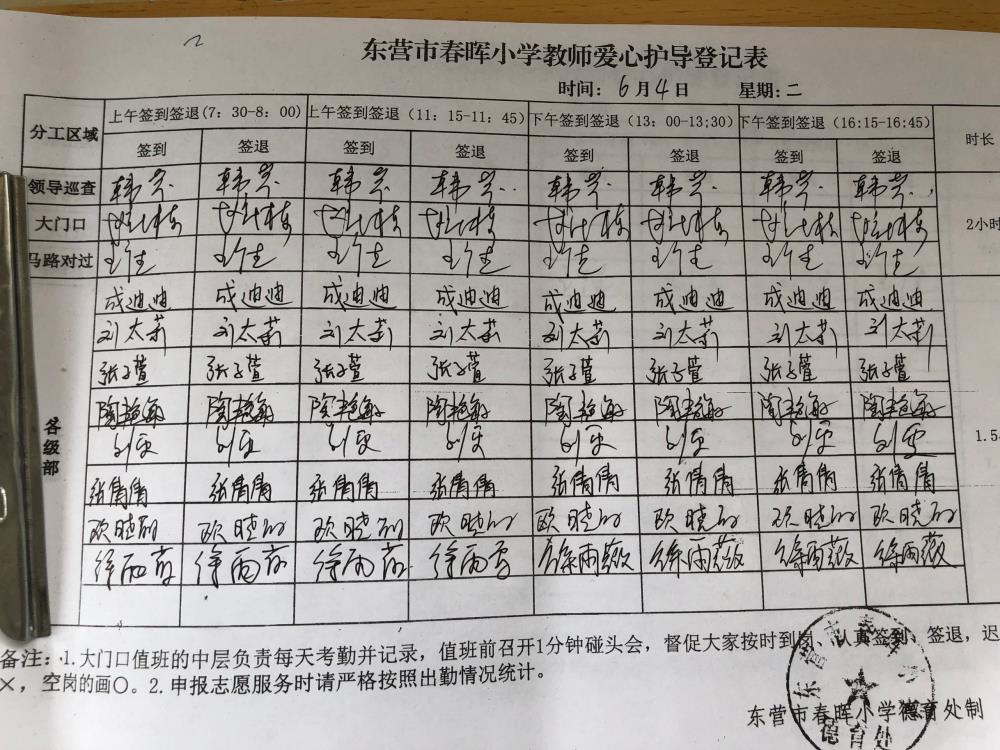 东营市春晖小学教师爱心护导登记表
时间: 6月4日 星期:二
分工区域 上午签到签退(7:30-8:00) 上午签到签退(11:15-11:45) 下午签到签退(13:00-13;30) 下午签到签退(16:15-16:45) 时长
签到 签退 签到 签退 签到 签退 签到 签退
领导巡查 韩芳 韩芳 韩芳 韩芳 韩芳 韩芳 韩芳 韩芳
大门口 2小时
马路对过
成迪迪 成迪迪 成迪迪 成迪迪 成迪迪 成迪迪 成迪迪 成迪迪
刘太莉 刘太莉 刘太莉 刘太莉 刘太莉 刘太莉 刘太莉 刘太莉
张子萱 张子萱 张子萱 张子萱 张子萱 张子萱 张子萱 张子萱
陶艳敏 陶艳敏 陶艳敏 陶艳敏 陶艳敏 陶艳敏 陶艳敏 陶艳敏
各级部 1.5
张倩倩 张倩倩 张倩倩 张倩倩 张倩倩 张倩倩 张倩倩 张倩倩
欧晓 欧晓 欧晓 欧晓 欧晓 欧晓 欧晓 欧晓
徐雨薇 徐雨薇 徐雨薇 徐雨薇 徐雨薇 徐雨薇 徐雨薇 徐雨薇
备注:1.大门口值班的中层负责每天考勤并记录,值班前召开1分钟碰头会,督促大家按时到岗、认真签到、签退,迟
×,空岗的画〇。2.申报志愿服务时请严格按照出勤情况统计。
东营市春晖小学德育处制
德育处